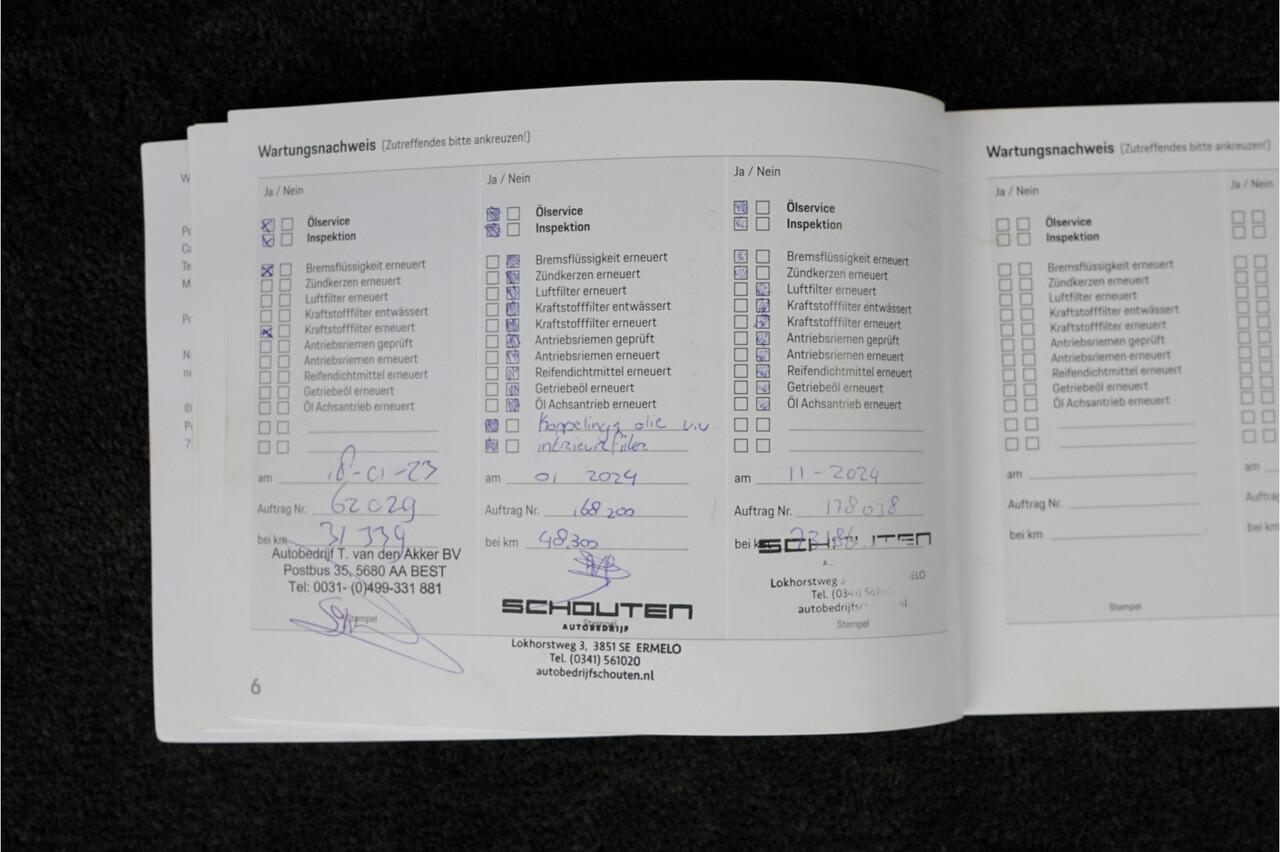 Wartungsnachweis (Zutreffendes bitte ankreuzen!)
Ja / Nein
Ölservice
Inspektion
Bremsflüssigkeit erneuert
Zündkerzen erneuert
Luftfilter erneuert
Kraftstofffilter entwässert
Kraftstofffilter erneuert
Antriebsriemen geprüft
Antriebsriemen erneuert
Reifendichtmittel erneuert
Getriebeöl erneuert
Öl Achsantrieb erneuert
am 18-01-23
Auftrag Nr. 62029
bei km 31339
Autobedrijf T. van den Akker BV
Postbus 35, 5680 AA BEST
Tel: 0031- (0)499-331 881
Stempel
6
Ja / Nein
Ölservice
Inspektion
Bremsflüssigkeit erneuert
Zündkerzen erneuert
Luftfilter erneuert
Kraftstofffilter entwässert
Kraftstofffilter erneuert
Antriebsriemen geprüft
Antriebsriemen erneuert
Reifendichtmittel erneuert
Getriebeöl erneuert
Öl Achsantrieb erneuert
Koppelings olie v.v
intrieurfilter
am 01 2024
Auftrag Nr. 168200
bei km 48.300
SCHOUTEN
AUTOBEDRIJF
Stempel
Lokhorstweg 3, 3851 SE ERMELO
Tel. (0341) 561020
autobedrijfschouten.nl
Ja / Nein
Ölservice
Inspektion
Bremsflüssigkeit erneuert
Zündkerzen erneuert
Luftfilter erneuert
Kraftstofffilter entwässert
Kraftstofffilter erneuert
Antriebsriemen geprüft
Antriebsriemen erneuert
Reifendichtmittel erneuert
Getriebeöl erneuert
Öl Achsantrieb erneuert
am 11-2024
Auftrag Nr. 178038
bei km
SCHOUTEN
Lokhorstweg
Tel. (0341)
Stempel
Wartungsnachweis (Zutreffendes bitte ankreuzen!)
Ja / Nein
Ölservice
Inspektion
Bremsflüssigkeit erneuert
Zündkerzen erneuert
Luftfilter erneuert
Kraftstofffilter entwässert
Kraftstofffilter erneuert
Antriebsriemen geprüft
Antriebsriemen erneuert
Reifendichtmittel erneuert
Getriebeöl erneuert
Öl Achsantrieb erneuert
am
Auftrag Nr.
bei km
Stempel
Ja / Nein
am
bei km